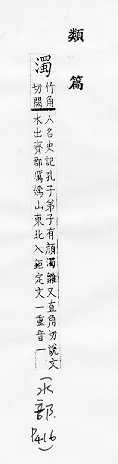 類篇
濁
竹角
切闕
人名史記孔子弟子有顏濁鄒又直角切說文
水出齊郡厲嬀山東北入鉅定文一重音一
(水部 P416)